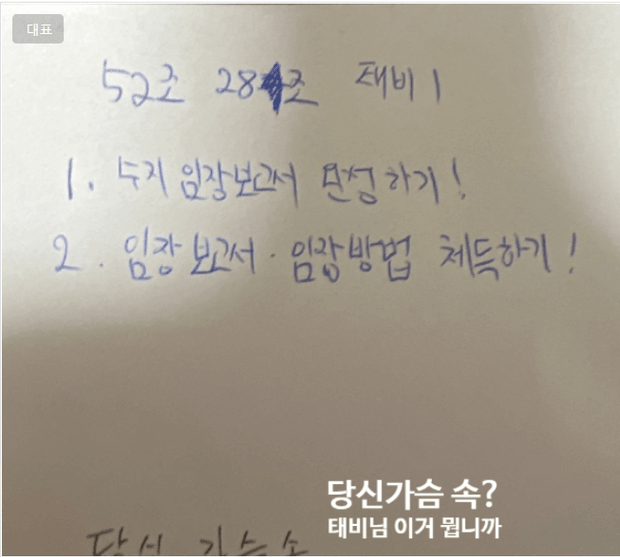 대표
52조 28조 태비1
1. 수지 임장보고서 완성하기!
2. 임장보고서. 임장방법 체득하기!
당신가슴 속?
태비님 이거 뭡니까
당신 가슴속